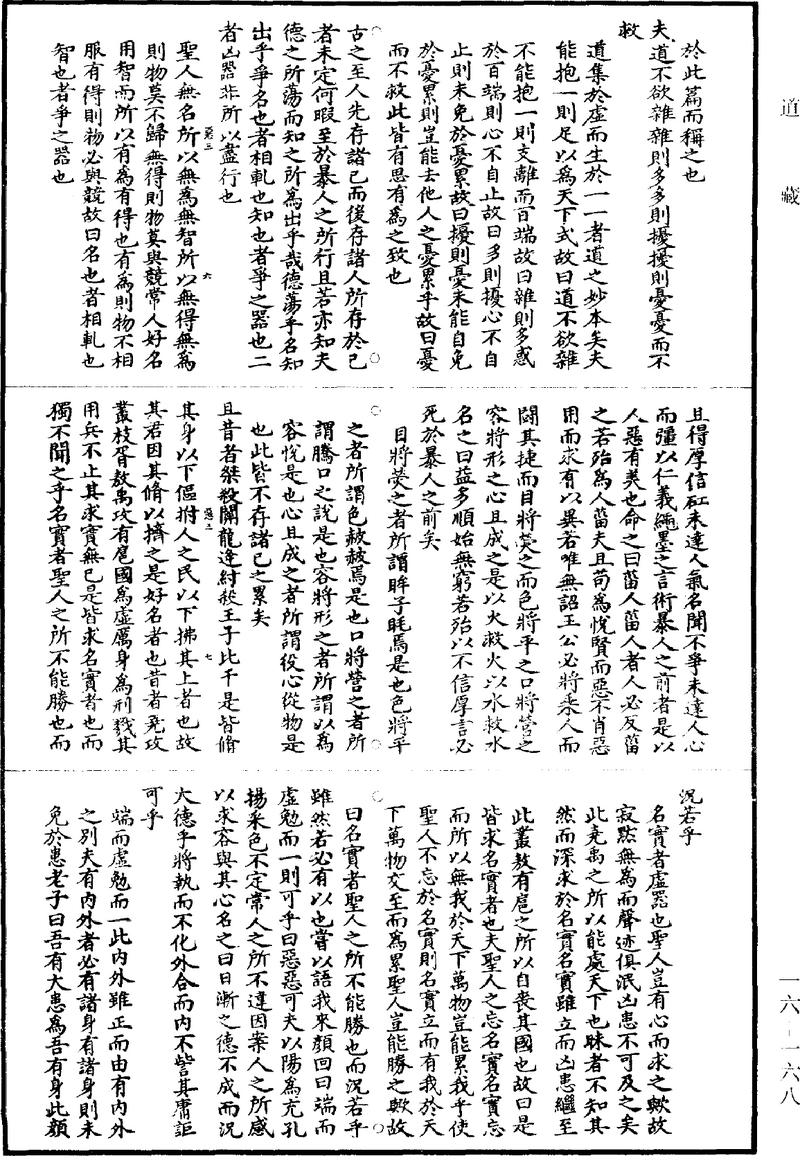 道藏
於此篇而稱之也
夫道不欲雜雜則多多則擾擾則憂憂而不
救
道集於虛而生於一一者道之妙本矣夫
能抱一則足以為天下式故曰道不欲雜
不能抱一則支離而百端故曰雜則多惑
於百端則心不自止故曰多則擾心不自
止則未免於憂累故曰擾則憂未能自免
於憂累則豈能去他人之憂累乎故曰憂
而不救此皆有思有為之致也
古之至人先存諸己而後存諸人所存於己
者未定何暇至於暴人之所行且若亦知夫
德之所蕩而知之所為出乎哉德蕩乎名知
出乎爭名也者相軋也知也者爭之器也二
者凶器非所以盡行也
聖人無名所以無為無智所以無得無為
則物莫不歸無得則物莫與競常人好名
用智而所以有為有得也有為則物不相
服有得則物必與競故曰名也者相軋也
智也者爭之器也
且得厚信矼未達人氣名聞不爭未達人心
而彊以仁義繩墨之言術暴人之前者是以
人惡有美也命之曰菑人菑人者人必反菑
之若殆為人菑夫且苟為悅賢而惡不肖惡
用而求有以異若唯無詔王公必將乘人而
鬬其捷而目將熒之而色將平之口將營之
容將形之心且成之是以火救火以水救水
名之曰益多順始無窮若殆以不信厚言必
死於暴人之前矣
目將熒之者所謂眸子眊焉是也色將平
之者所謂色赧赧焉是也口將營之者所
謂騰口之說是也容將形之者所謂以為
容悅是也心且成之者所謂役心從物是
也此皆不存諸己之累矣
且昔者桀殺關龍逢紂殺王子比干是皆脩
其身以下傴拊人之民以下拂其上者也故
其君因其脩以擠之是好名者也昔者堯攻
叢枝胥敖禹攻有扈國為虛厲身為刑戮其
用兵不止其求實無已是皆求名實者也而
獨不聞之乎名實者聖人之所不能勝也而
況若乎
名實者虛器也聖人豈有心而求之歟故
寂默無為而聲迹俱泯凶患不可及之矣
此堯禹之所以能處天下也昧者不知其
然而深求於名實名實雖立而凶患繼至
此叢敖有扈之所以自喪其國也故曰是
皆求名實者也夫聖人之忘名實名實忘
而所以無我於天下萬物豈能累我乎使
聖人不忘於名實則名實立而有我於天
下萬物交至而為累聖人豈能勝之歟故
曰名實者聖人之所不能勝也而況若乎
雖然若必有以也嘗以語我來顏回曰端而
虛勉而一則可乎曰惡惡可夫以陽為充孔
揚采色不定常人之所不違因案人之所感
以求容與其心名之曰日漸之德不成而況
大德乎將執而不化外合而內不訾其庸詎
可乎
端而虛勉而一此內外雖正而由有內外
之別夫有內外者必有諸身有諸身則未
免於患老子曰吾有大患為吾有身此顏
一六－一六八